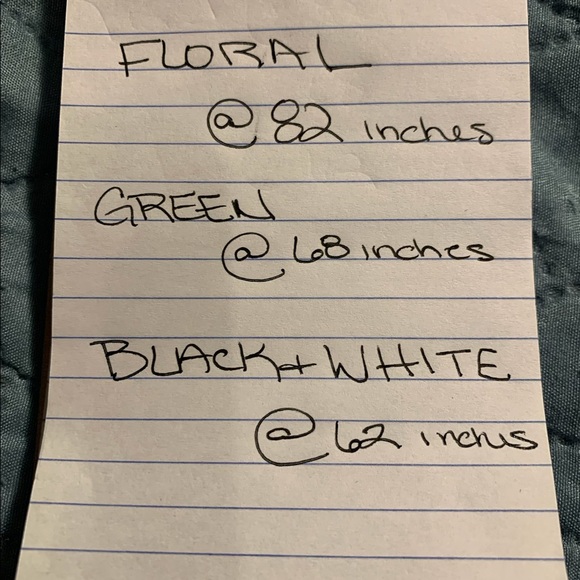 FLORAL
@ 82 inches
GREEN
@ 68 inches
BLACK + WHITE
@ 62 inches